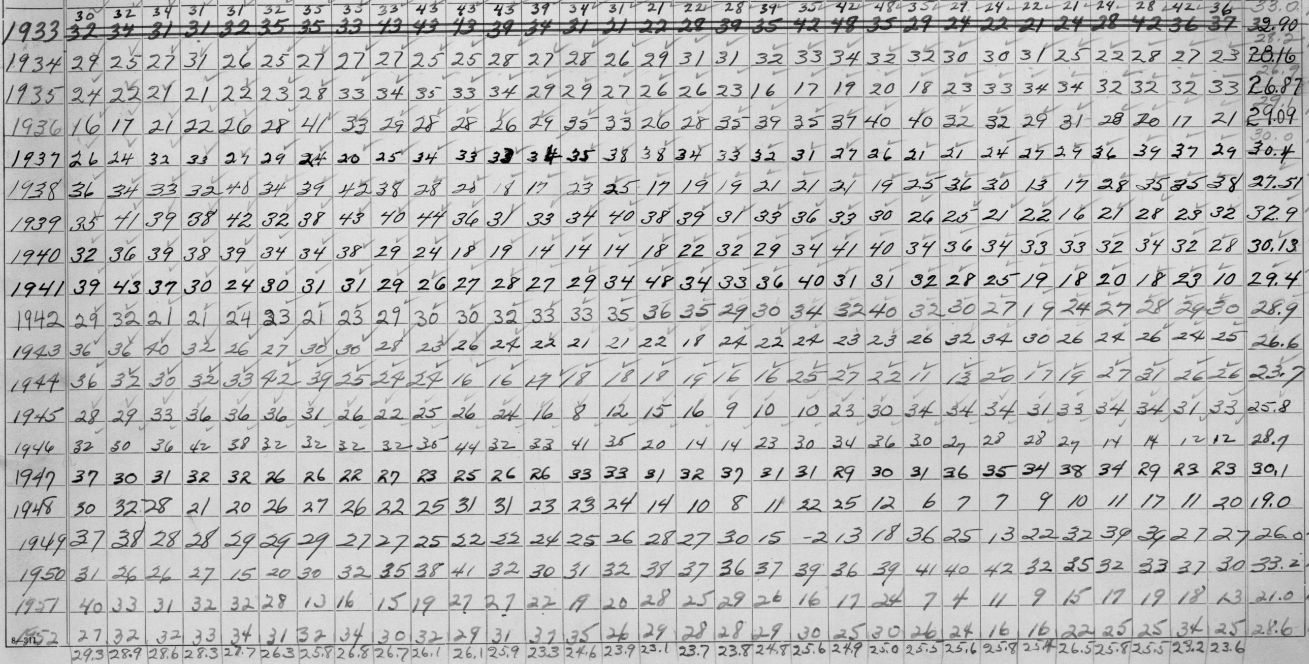 30 32 34 31 31 32 35 35 33 43 43 43 39 34 31 21 22 28 39 35 42 48 35 29 24 22 21 24 28 42 36 33.0
1933 32 34 31 31 32 35 35 33 43 43 43 39 34 31 21 22 28 39 35 42 48 35 29 24 22 21 24 28 42 36 37 32.90
1934 29 25 27 31 26 25 27 27 27 25 25 28 27 28 26 29 31 31 32 33 34 32 32 30 30 31 25 22 28 27 23 28.16
1935 24 22 24 21 22 23 28 33 34 35 33 34 29 29 27 26 26 23 16 17 19 20 18 23 33 34 34 32 32 32 33 26.87
1936 16 17 21 22 26 28 41 33 29 28 28 26 29 35 33 26 28 35 39 35 37 40 40 32 32 29 31 28 20 17 21 29.09
1937 26 24 32 33 27 29 24 20 25 34 33 33 34 35 38 38 34 33 32 31 27 26 21 21 24 27 29 36 39 37 29 30.4
1938 36 34 33 32 40 34 39 42 38 28 20 18 17 23 25 17 19 19 21 21 21 19 25 36 30 13 17 28 35 35 38 27.51
1939 35 41 39 38 42 32 38 43 40 44 36 31 33 34 40 38 39 31 33 36 33 30 26 25 21 22 16 21 28 23 32 32.9
1940 32 36 39 38 39 34 34 38 29 24 18 19 14 14 14 18 22 32 29 34 41 40 34 36 34 33 33 32 34 32 28 30.13
1941 39 43 37 30 24 30 31 31 29 26 27 28 27 29 34 48 34 33 36 40 31 31 32 28 25 19 18 20 18 23 10 29.4
1942 29 32 21 21 24 23 21 23 29 30 30 32 33 33 35 36 35 29 30 34 32 40 32 30 27 19 24 27 28 29 30 28.9
1943 36 36 40 32 26 27 30 30 28 23 26 24 22 21 21 22 18 24 22 24 23 23 26 32 34 30 26 24 26 24 25 26.6
1944 36 32 30 32 33 42 39 25 24 24 16 16 17 18 18 18 19 16 16 25 27 22 11 13 20 17 19 27 31 26 26 23.7
1945 28 29 33 36 36 36 31 26 22 25 26 24 16 8 12 15 16 9 10 10 23 30 34 34 34 31 33 34 34 31 33 25.8
1946 32 30 36 42 38 32 32 32 32 35 44 32 33 41 35 20 14 14 23 30 34 36 30 27 28 28 27 14 14 12 12 28.7
1947 37 30 31 32 32 26 26 22 27 23 25 26 26 33 33 31 32 37 31 31 29 30 31 36 35 34 38 34 29 23 23 30.1
1948 30 32 28 21 20 26 27 26 22 25 31 31 23 23 24 14 10 8 11 22 25 12 6 7 7 9 10 11 17 11 20 19.0
1949 37 38 28 28 29 29 29 27 27 25 22 32 24 25 26 28 27 30 15 -2 13 18 36 25 13 22 32 39 39 27 27 26.0
1950 31 26 26 27 15 20 30 32 35 38 41 32 30 31 32 38 37 36 37 39 36 39 41 40 42 32 25 32 33 37 30 33.2
1951 40 33 31 32 32 28 13 16 15 19 27 27 22 19 20 28 25 29 26 16 17 24 7 4 11 9 15 17 19 18 13 21.0
52 27 32 32 33 34 31 32 34 30 32 29 31 37 35 26 29 28 28 29 30 25 30 26 24 16 16 22 25 25 34 25 28.6
29.3 28.9 28.6 28.3 27.7 26.3 25.8 26.8 26.7 26.1 26.1 25.9 23.3 24.6 23.9 23.1 23.7 23.8 24.8 25.6 24.9 25.0 25.5 25.6 25.8 25.4 26.5 25.8 25.5 23.2 23.6